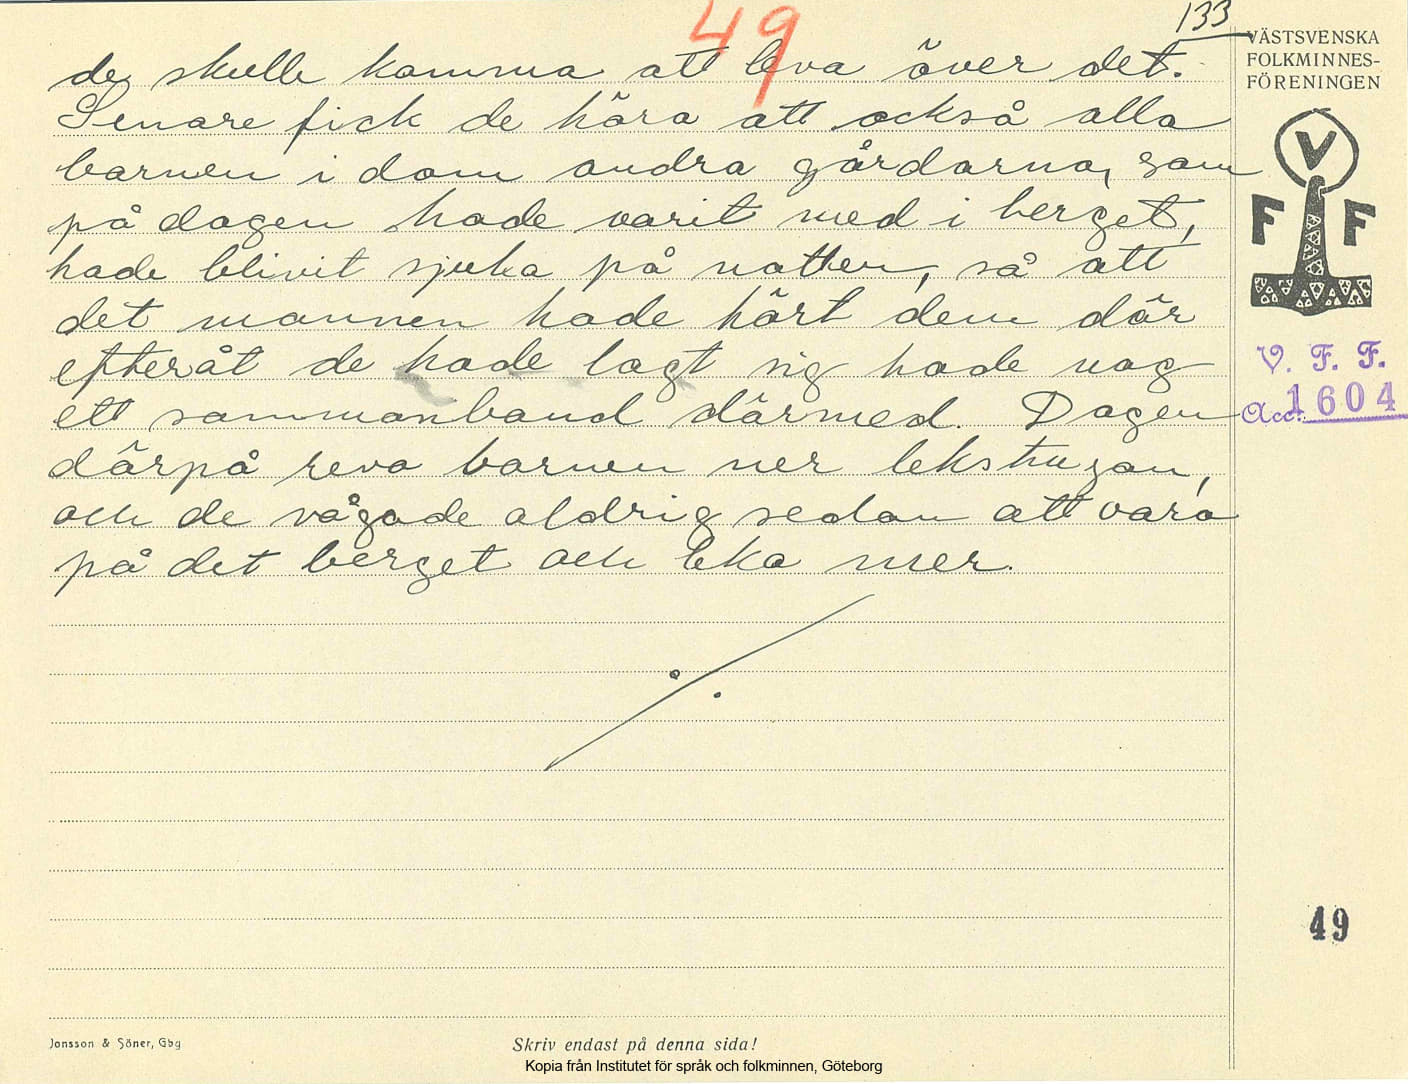 49
133
de skulle komma att leva över det.
Senare fick de höra att också alla
barnen i dom andra gårdarna, som
på dagen hade varit med i berget,
hade blivit sjuka på natten, så att
det mannen hade hört dem där
efteråt de hade lagt sig hade nog
ett sammanband därmed. Dagen
därpå reva barnen ner lekstugan,
och de vågade aldrig sedan att vara
på det berget och leka mer.
VÄSTSVENSKA
FOLKMINNES-
FÖRENINGEN
V
F F
V. F. F.
Acc. 1604
49
Jonsson & Söner, Gbg
Skriv endast på denna sida!
Kopia från Institutet för språk och folkminnen, Göteborg